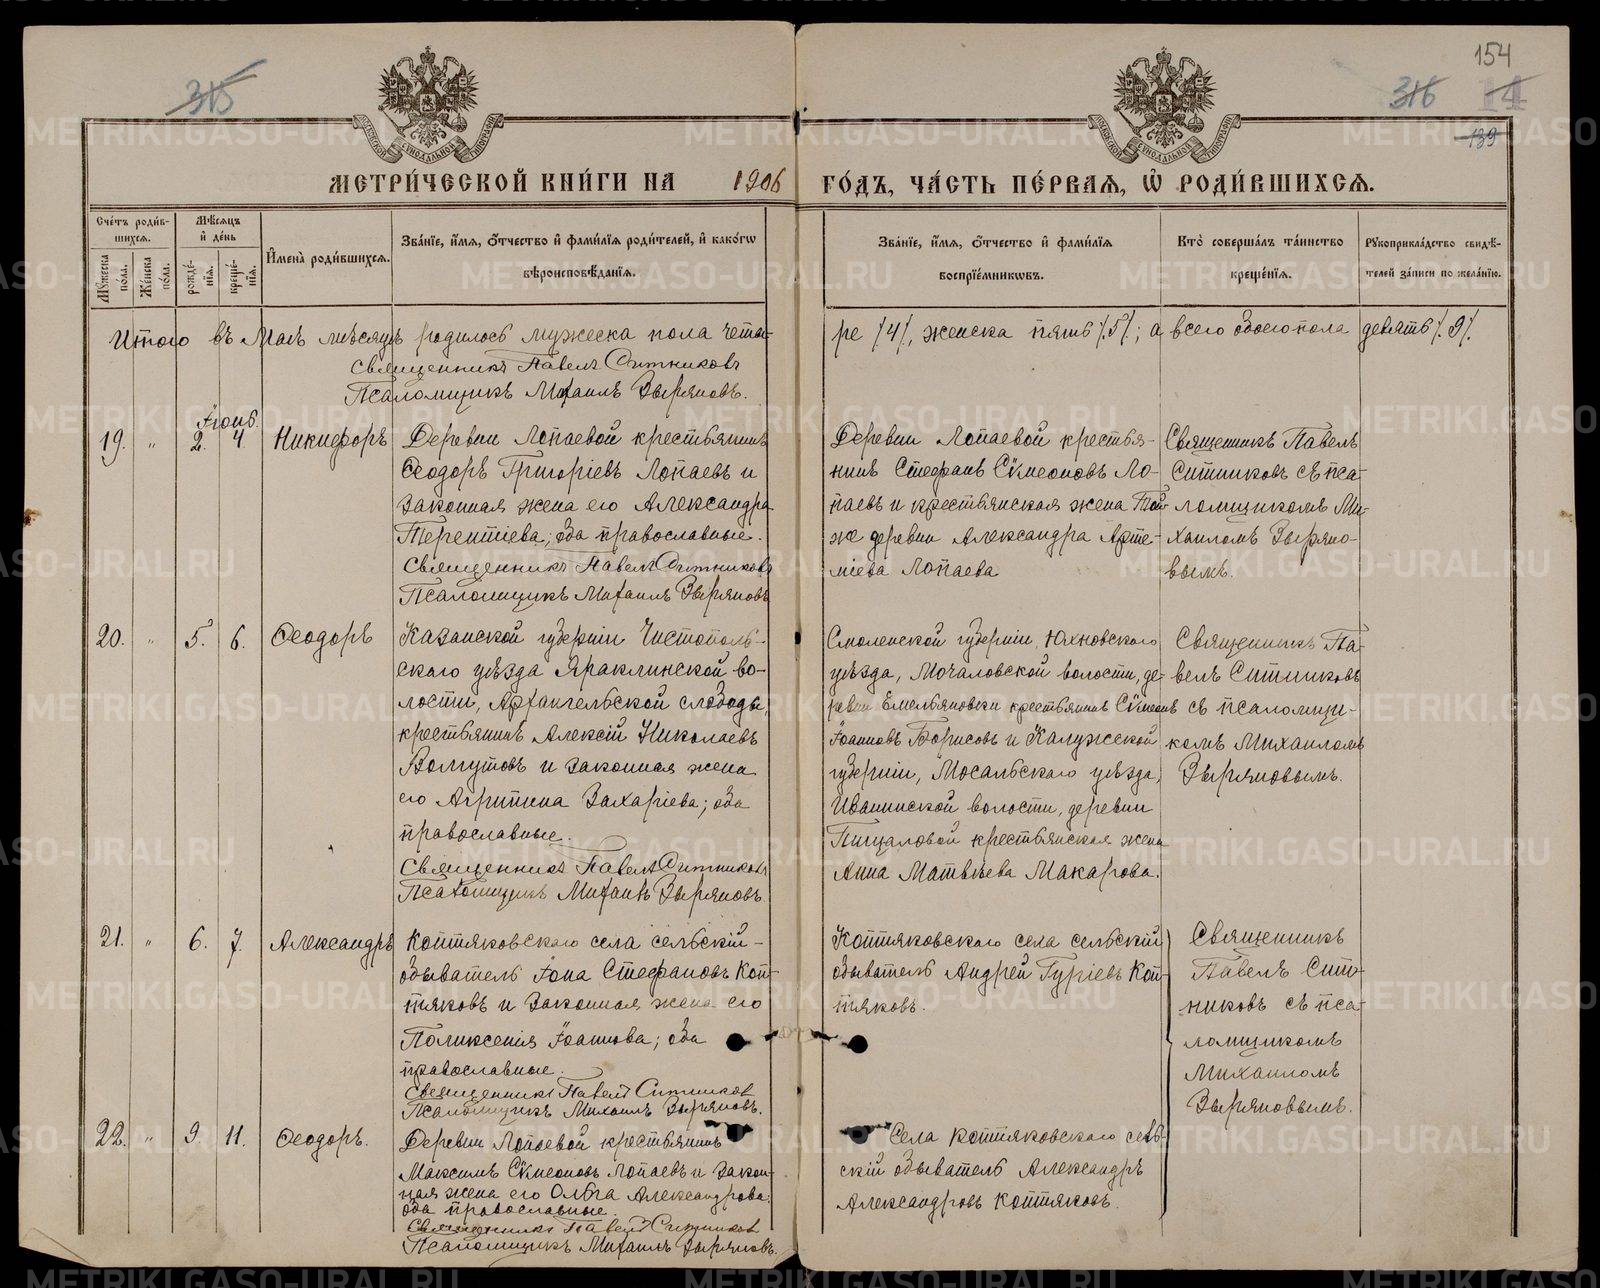 315
154
316
139
МЕТРИ́ЧЕСКОЙ КНИ́ГИ НА 1906 ГО́ДЪ, ЧА́СТЬ ПЕ́РВАѦ, Ѡ҆ РОДИ́ВШИХСѦ.
Сче́тъ роди́в-
шихсѧ.
Мѣ́сѧцъ
и҆ де́нь
Мꙋ́жеска
по́ла.
Же́нска
по́ла.
рожде́-
нїѧ.
креще́-
нїѧ.
И҆мена̀ роди́вшихсѧ.
Зва́нїе, и҆́мѧ, ѻ҆́тчество и҆ фами́лїѧ роди́телей, и҆ како́гѡ
вѣроисповѣ́данїѧ.
Зва́нїе, и҆́мѧ, ѻ҆́тчество и҆ фами́лїѧ
воспрїе́мникѡвъ.
Кто̀ соверша́лъ та́инство
креще́нїѧ.
Рꙋкоприкла́дство свидѣ́-
телей за́писи по жела́нїю.
Итого въ Маѣ мѣсяцѣ родилось мужеска пола четы-
ре /4/, женска пять /5/; а всего обоего пола девять /9/
Священникъ Павелъ Ситниковъ
Псаломщикъ Михаилъ Зыряновъ.
Іюнь
19. " 2. 4 Никифоръ
Деревни Лопаевой крестьянинъ
Ѳеодоръ Григоріевъ Лопаевъ и
законная жена его Александра
Терентіева; оба православные.
Священникъ Павелъ Ситниковъ
Псаломщикъ Михаилъ Зыряновъ
Деревни Лопаевой крестья-
нинъ Стефанъ Сѵмеоновъ Ло-
паевъ и крестьянская жена той
же деревни Александра Арте-
міева Лопаева
Священникъ Павелъ
Ситниковъ съ пса-
ломщикомъ Ми-
хаиломъ Зыряно-
вымъ.
20. " 5. 6. Ѳеодоръ
Казанской губерніи Чистополь-
скаго уѣзда Яраклинской во-
лости, Архангельской слободы,
крестьянинъ Алексій Николаевъ
и законная жена
его Агрипина Захаріева; оба
православные.
Священникъ Павелъ Ситниковъ
Псаломщикъ Михаилъ Зыряновъ.
Смоленской губерніи, Юхновскаго
уѣзда, Мочаловской волости, де-
ревни Емельяновки крестьянинъ Сѵмеонъ
Іоанновъ Борисовъ и Калужской
губерніи, Мосальскаго уѣзда,
Иванинской волости, деревни
Пищаловой крестьянская жена
Анна Матвѣева Макарова.
Священникъ Па-
велъ Ситниковъ
съ псаломщи-
комъ Михаиломъ
Зыряновымъ.
21. " 6. 7. Александръ
Коптяковскаго села сельскій
обыватель Іона Стефановъ Коп-
тяковъ и законная жена его
Поликсенія Іоаннова; оба
православные.
Священникъ Павелъ Ситниковъ
Псаломщикъ Михаилъ Зыряновъ.
Коптяковскаго села сельскій
обыватель Андрей Гуріевъ Коп-
тяковъ.
Священникъ
Павелъ Сит-
никовъ съ пса-
ломщикомъ
Михаиломъ
Зыряновымъ.
22. " 9. 11. Ѳеодоръ.
Деревни Лопаевой крестьянинъ
Максимъ Сѵмеоновъ Лопаевъ и закон-
ная жена его Ольга Александрова;
оба православные.
Священникъ Павелъ Ситниковъ
Псаломщикъ Михаилъ Зыряновъ.
Села Коптяковскаго сель-
скій обыватель Александръ
Александровъ Коптяковъ.